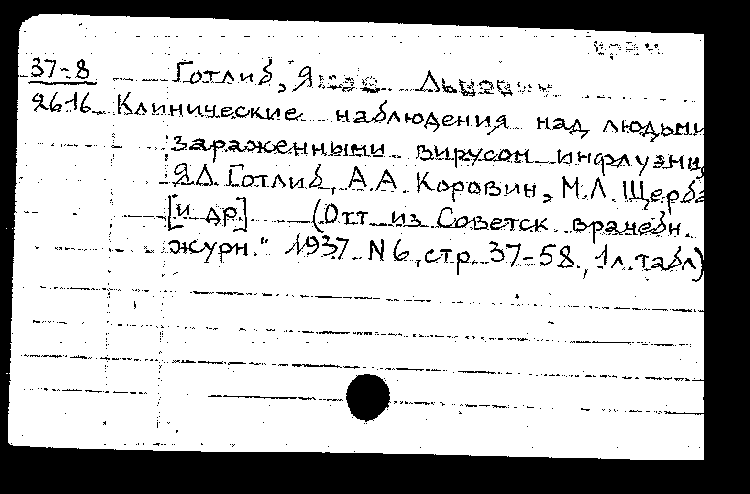 врач
37-8 Готлиб, Яков Львович
2616 Клинические наблюдения над людьми
зараженными вирусом инфлуэнц
Я.Л. Готлиб, А.А. Коровин, М.Л. Щерба
[и др.] (Отт. из Советск врачебн.
журн." 1937 N6, стр. 37-58., 1 л. табл)